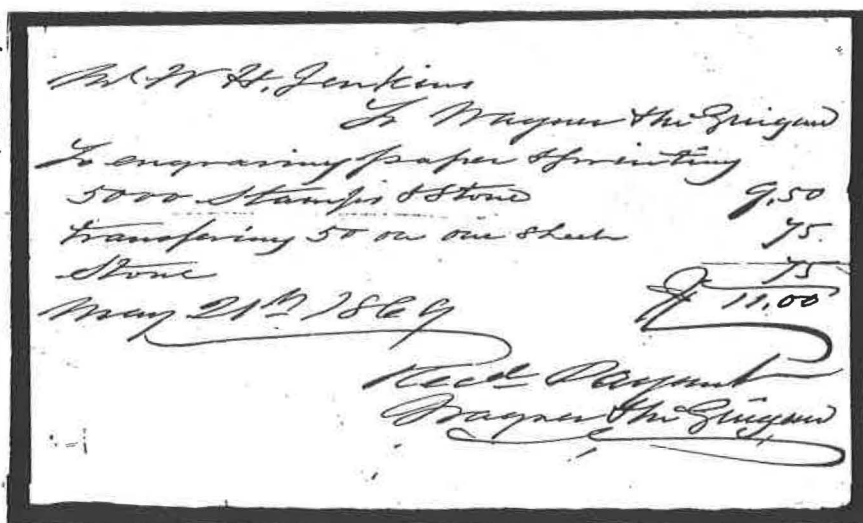 Mr W. H. Jenkins
To Wagner & McGuigan
To engraving paper & printing
5000 Stamps & Stone 9.50
transfering 50 on one sheet 75
Stone 75
May 21th 1869 $ 11.00
Recd Payment
Wagner & McGuigan